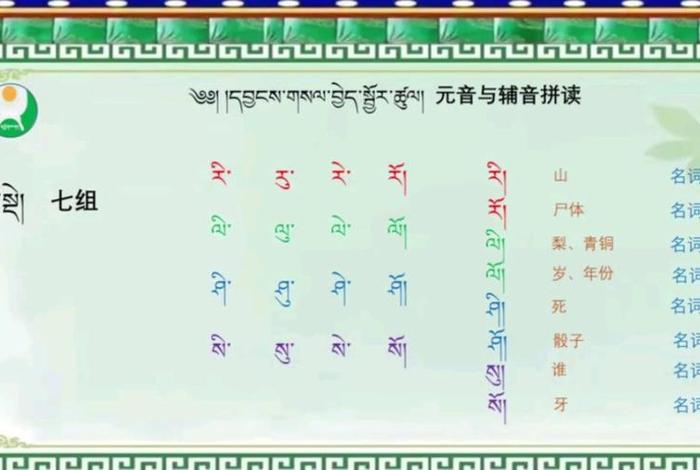 ༄༅། །དབྱངས་གསལ་བྱེད་སྦྱོར་ཚུལ། 元音与辅音拼读
སྡེ། 七组
རི་ རུ་ རེ་ རོ། རི། 山 名词
རོ། 尸体 名词
ལི་ ལུ་ ལེ་ ལོ། ལི། 梨、青铜 名词
ལོ། 岁、年份 名词
ཤི་ ཤུ་ ཤེ་ ཤོ། ཤི། 死 名词
ཤོ། 骰子 名词
སི་ སུ་ སེ་ སོ། སུ། 谁 名词
སོ། 牙 名词